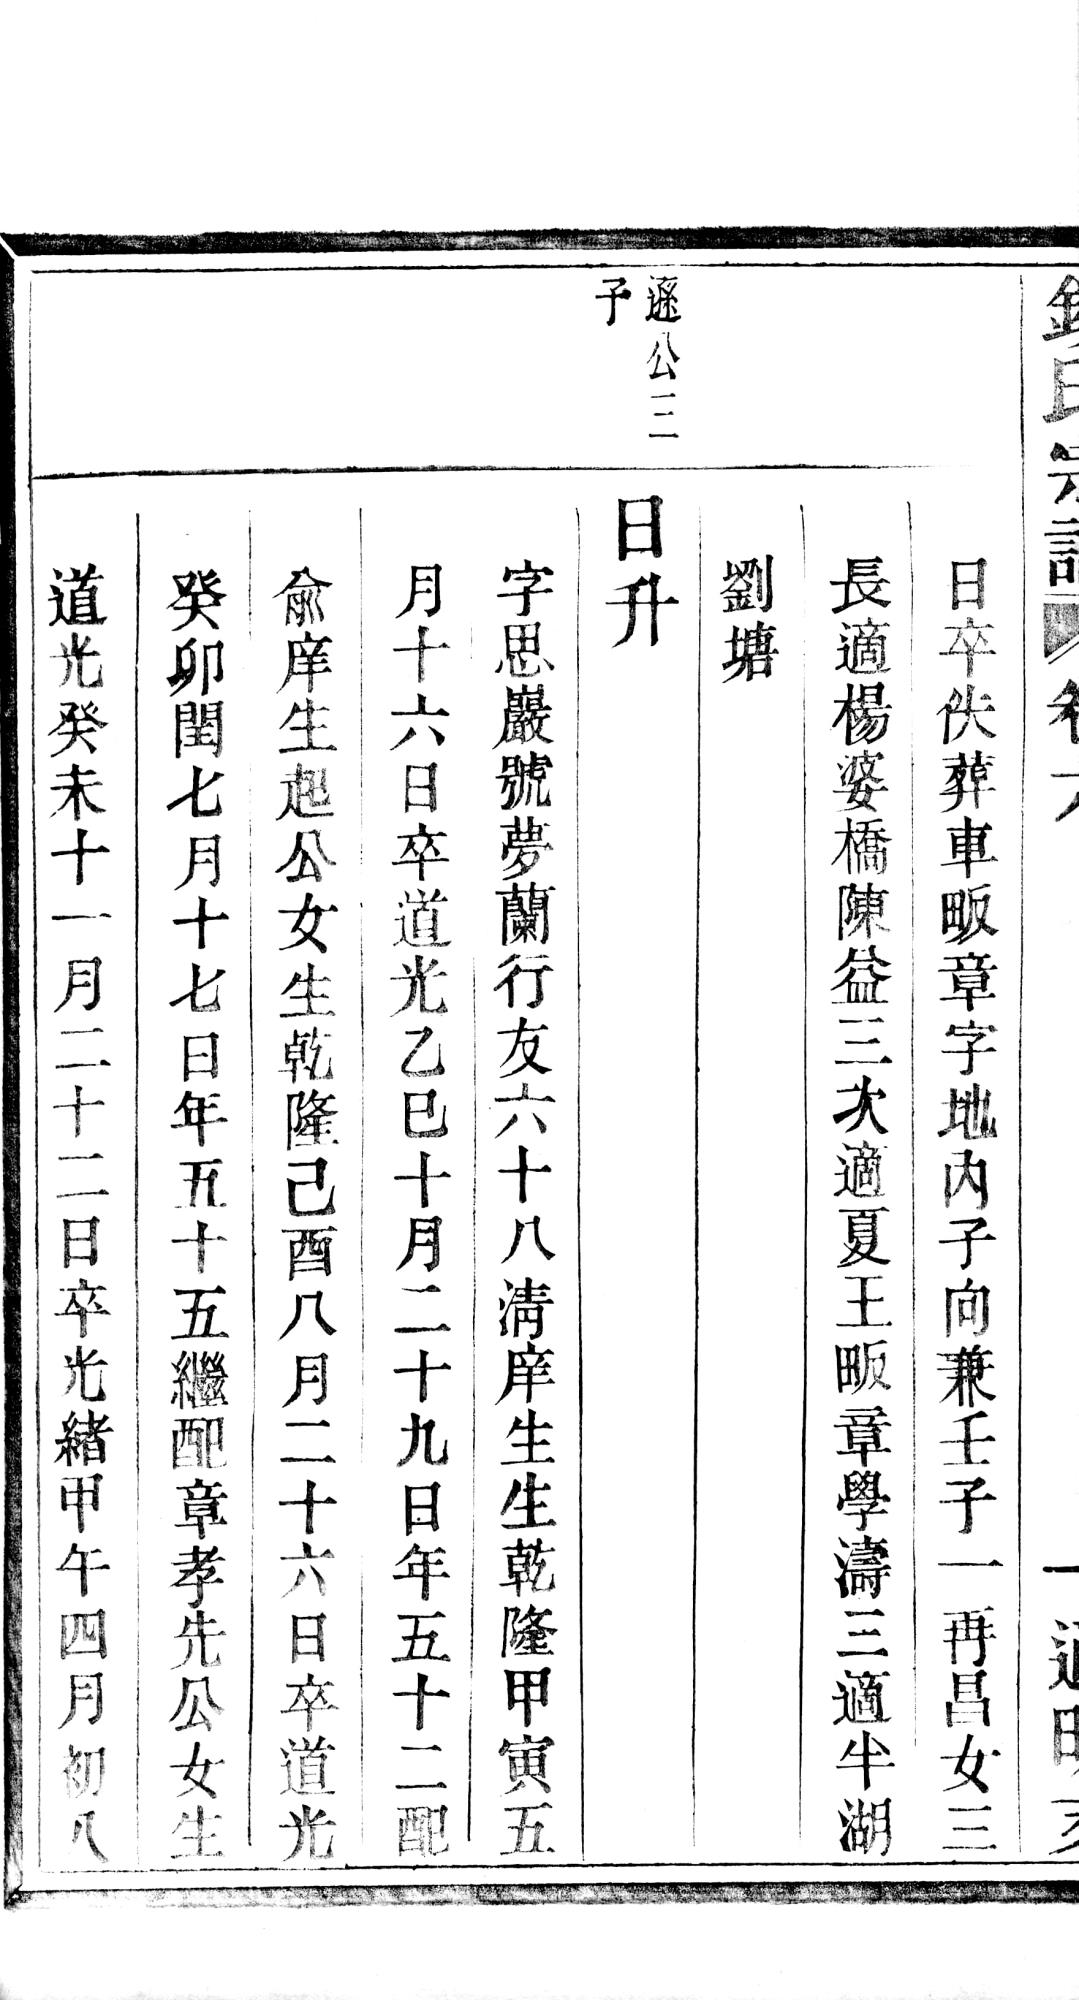 氏宗譜 卷六 一
日卒佚葬車畈章字地內子向兼壬子一再昌女三
長適楊婆橋陳益三次適夏王畈章學濤三適半湖
劉塘
遜公三
子
日升
字思巖號夢蘭行友六十八清庠生生乾隆甲寅五
月十六日卒道光乙巳十月二十九日年五十二配
俞庠生起公女生乾隆己酉八月二十六日卒道光
癸卯閏七月十七日年五十五繼配章孝先公女生
道光癸未十一月二十二日卒光緒甲午四月初八